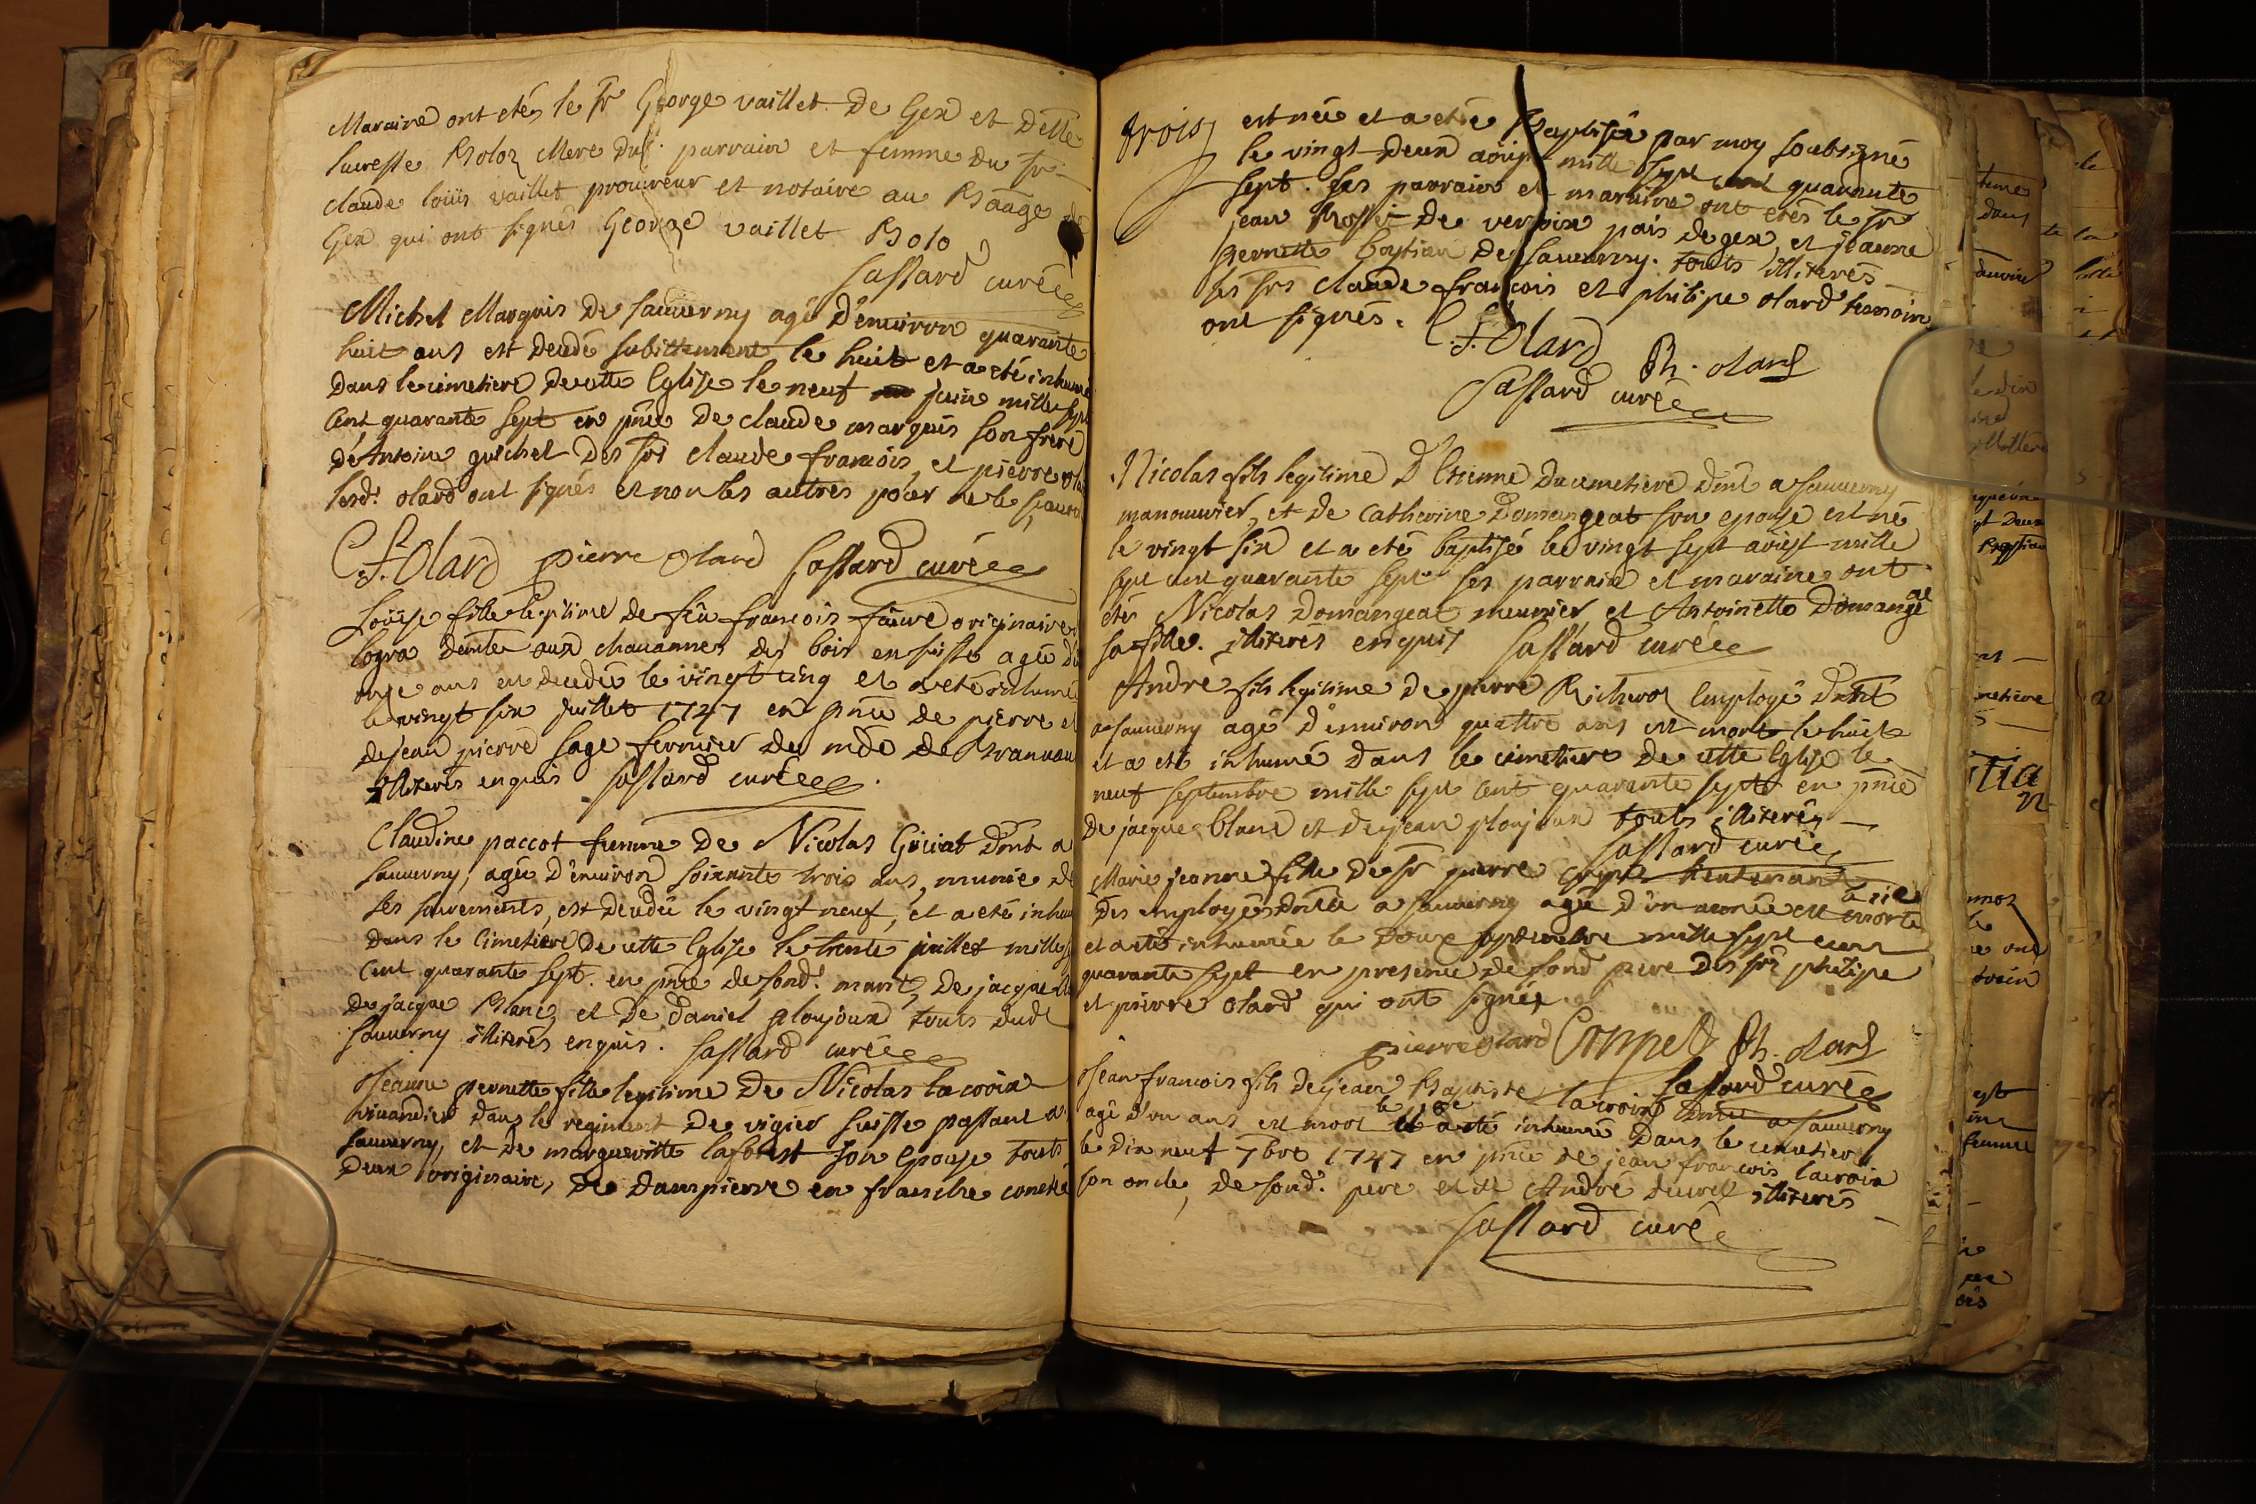 Maraine ont etés le Sr George vaillet De Gex et Delle
lucresse Boloz Mere Dud. parrain et femme du Sr
claude loüis vaillet procureur et notaire au Baage de
Gex qui ont signés George vaillet Bolo
Cassard curé
Michel Marquis De sauverny agé D'environ quarante
huit ans est decedé subittement le huit et a eté inhumé
Dans le cimetiere De cette Eglise le neuf juin mille sept
Cent quarante sept en pnce De claude marquis son frere
De Antoine guichet Des Srs claude francois et pierre olard
lesd. olard ont signés et non les autres pour ne le scavoir
C. f. Olard pierre olard Cassard curé
Loüise fille legitime de feu francois faivre originaire
Logra demte aux chavannes des bois en suisse agée d'
onze ans est decedée le vingt cinq et a eté inhumée
le vingt six juillet 1747 en pnce de pierre et
de jean pierre sage fermier de mde de
illiterés enquis Cassard curé
Claudine paccot femme De Nicolas Grivat Dmt a
sauverny, agée D'environ soixante trois ans, munie de
ses sacrements, est decedée le vingt neuf, et a eté inhumée
Dans le Cimetiere De cette Eglise le trente juillet mille
Cent quarante sept. en pnce de sond. marit, De jacque
De jacque Blanc et De Daniel ploujoux touts dud
Sauverny illiterés enquis. Cassard curé
Jeanne pernette fille legitime De Nicolas lacroix
vivandier dans le regiment De vigier suisse passant a
sauverny, et De margueritte laforest son Epouse touts
Deux originaires De Dampierre en franche comté
trois
est née et a etée Baptisée par moy soubsigné
le vingt-deux aoust mille sept cent quarante
sept. ses parrain et maraine ont etés le Sr
jean Rosset De versoix païs de gex, et jeanne
pernette Bastian De Sauverny. touts illiterés
les Srs claude francois et philipe olard temoins
ont signés. C. f. Olard Ph. olard
Cassard curé
Nicolas fils legitime D'Etienne Ducimetiere Dmt a sauverny
manouvrier, et De Catherine Domangeat son epouse est né
le vingt six et a eté baptisé le vingt sept aoust mille
sept cent quarante sept ses parrain et maraine ont
etés Nicolas Domangeat meunier et Antoinette Domange
at
sa fille. illiterés enquis Cassard curé
André fils legitime De pierre Richeroz Employé Demt
a sauverny agé D'environ quattre ans est mort le huit
et a eté inhumé dans le cimetiere De cette Eglise le
neuf septembre mille sept cent quarante sept en pnce
De jacque blanc et De jean ploujoux touts illiterés
Cassard curé
Marie jeanne fille De Sr pierre Compet lieutenant
Des employés Dmt a sauverny agée D'un année est morte
et a eté inhumée le Douze septembre mille sept cent
quarante sept en presence De sond pere Des Srs philipe
et pierre olard qui ont signés
pierre olard Compet Ph. olard
Cassard curé
Jean francois fils De jean Baptiste lacroix Dmt a sauverny
agé d'un ans est mort et a eté inhumé Dans le cimetiere
le Dix neuf 7bre 1747 en pnce De jean francois lacroix
son oncle, De sond. pere et De André illiterés
Cassard curé